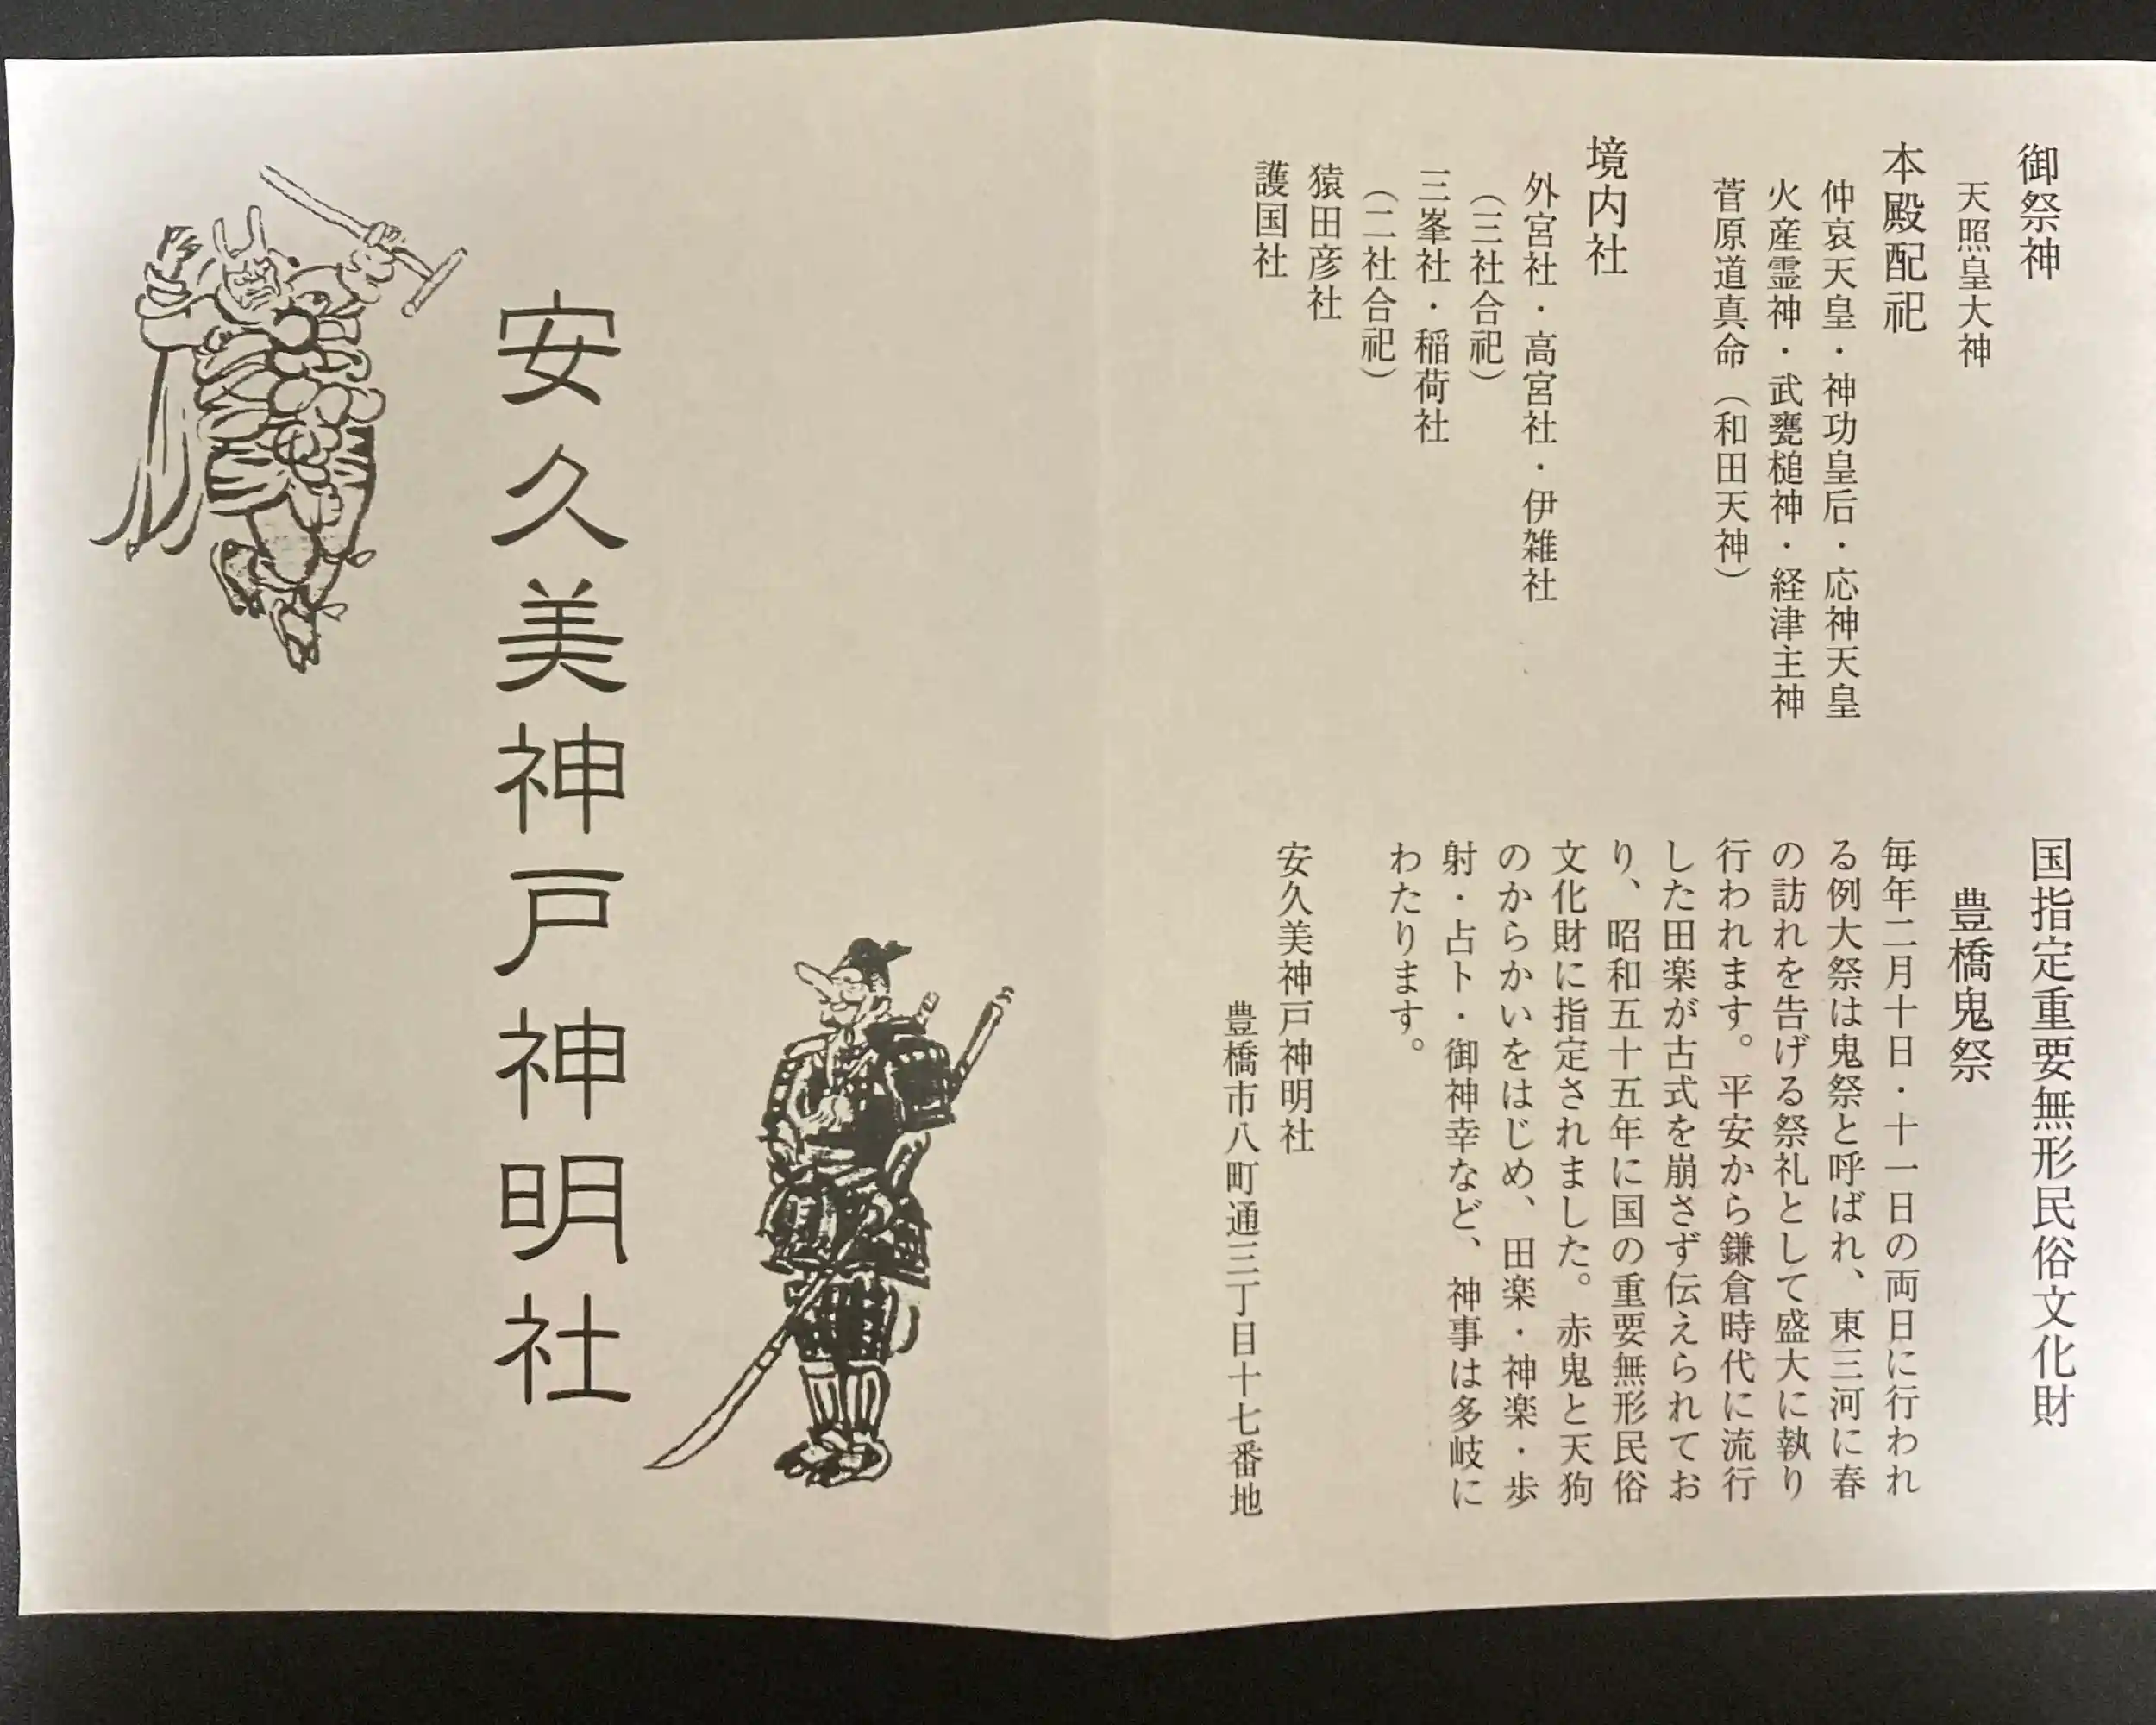 御祭神
天照皇大神
本殿配祀
仲哀天皇・神功皇后・応神天皇
火産霊神・武甕槌神・経津主神
菅原道真命（和田天神）
境内社
外宮社・高宮社・伊雑社
（三社合祀）
三峯社・稲荷社
（二社合祀）
猿田彦社
護国社
国指定重要無形民俗文化財
豊橋鬼祭
毎年二月十日・十一日の両日に行われ
る例大祭は鬼祭と呼ばれ、東三河に春
の訪れを告げる祭礼として盛大に執り
行われます。平安から鎌倉時代に流行
した田楽が古式を崩さず伝えられてお
り、昭和五十五年に国の重要無形民俗
文化財に指定されました。赤鬼と天狗
のからかいをはじめ、田楽・神楽・歩
射・占ト・御神幸など、神事は多岐に
わたります。
安久美神戸神明社
豊橋市八町通三丁目十七番地
安久美神戸神明社